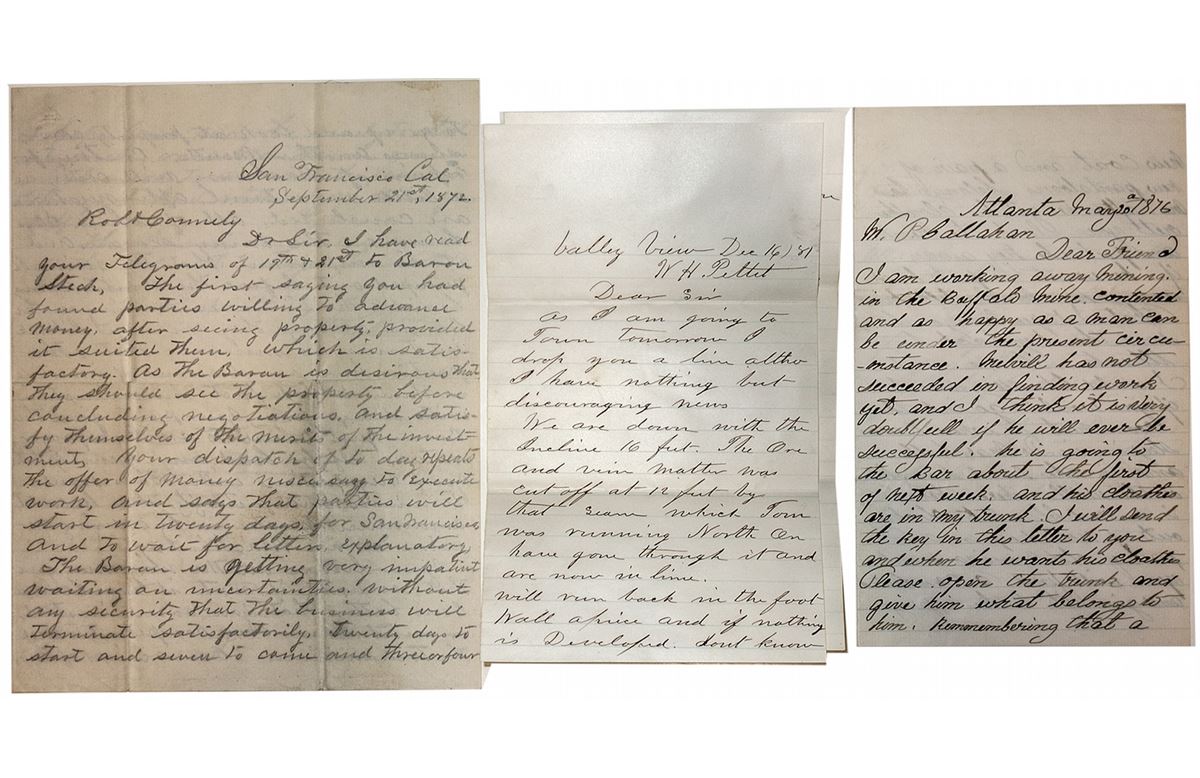 San Francisco Cal
September 21st, 1872.
Robt Connely
Dr Sir. I have read
your Telegrams of 19th & 21st to Baron
Steck, The first saying you had
found parties willing to advanse
money, after seeing property, provided
it suited them. Which is satis-
factory. As the Baron is desirous that
they should see the property before
concluding negotiations, and satis-
fy themselves of the merits of the invest
ment, your dispatch of to day repeats
the offer of money necessary to execute
work, and says that parties will
start in twenty days, for San Francisco
and to wait for letter, explanatory
The Baron is getting very impatient
waiting on uncertainties, without
any security that the business will
terminate satisfactorily. Twenty days to
start and seven to come and three or four
Valley View Dec 16) '81
W. H. Pettet
Dear Sir
as I am going to
Town tomorrow I
drop you a line altho
I have nothing but
discouraging news
We are down with the
Incline 16 feet. The Ore
and vein matter was
cut off at 12 feet by
that seam which Tom
was running North on
have gone through it and
are now in lime.
will run back in the foot
Wall apiece and if nothing
is Developed. dont know
Atlanta May 20 1876
W. P Callahan
Dear Friend
I am working away mining.
in the Buffalo mine. contented
and as happy as a man can
be under the present circu-
-mstance. Melvill has not
succeeded in finding work
yet, and I think it is very
doubtfull if he will ever be
successful. he is going to
the Bar about the first
of next week. and his cloathes
are in my trunk I will send
the key in this letter to you
and when he wants his cloathes
Please. open the trunk and
give him what belongs to
him. Remmembering that a